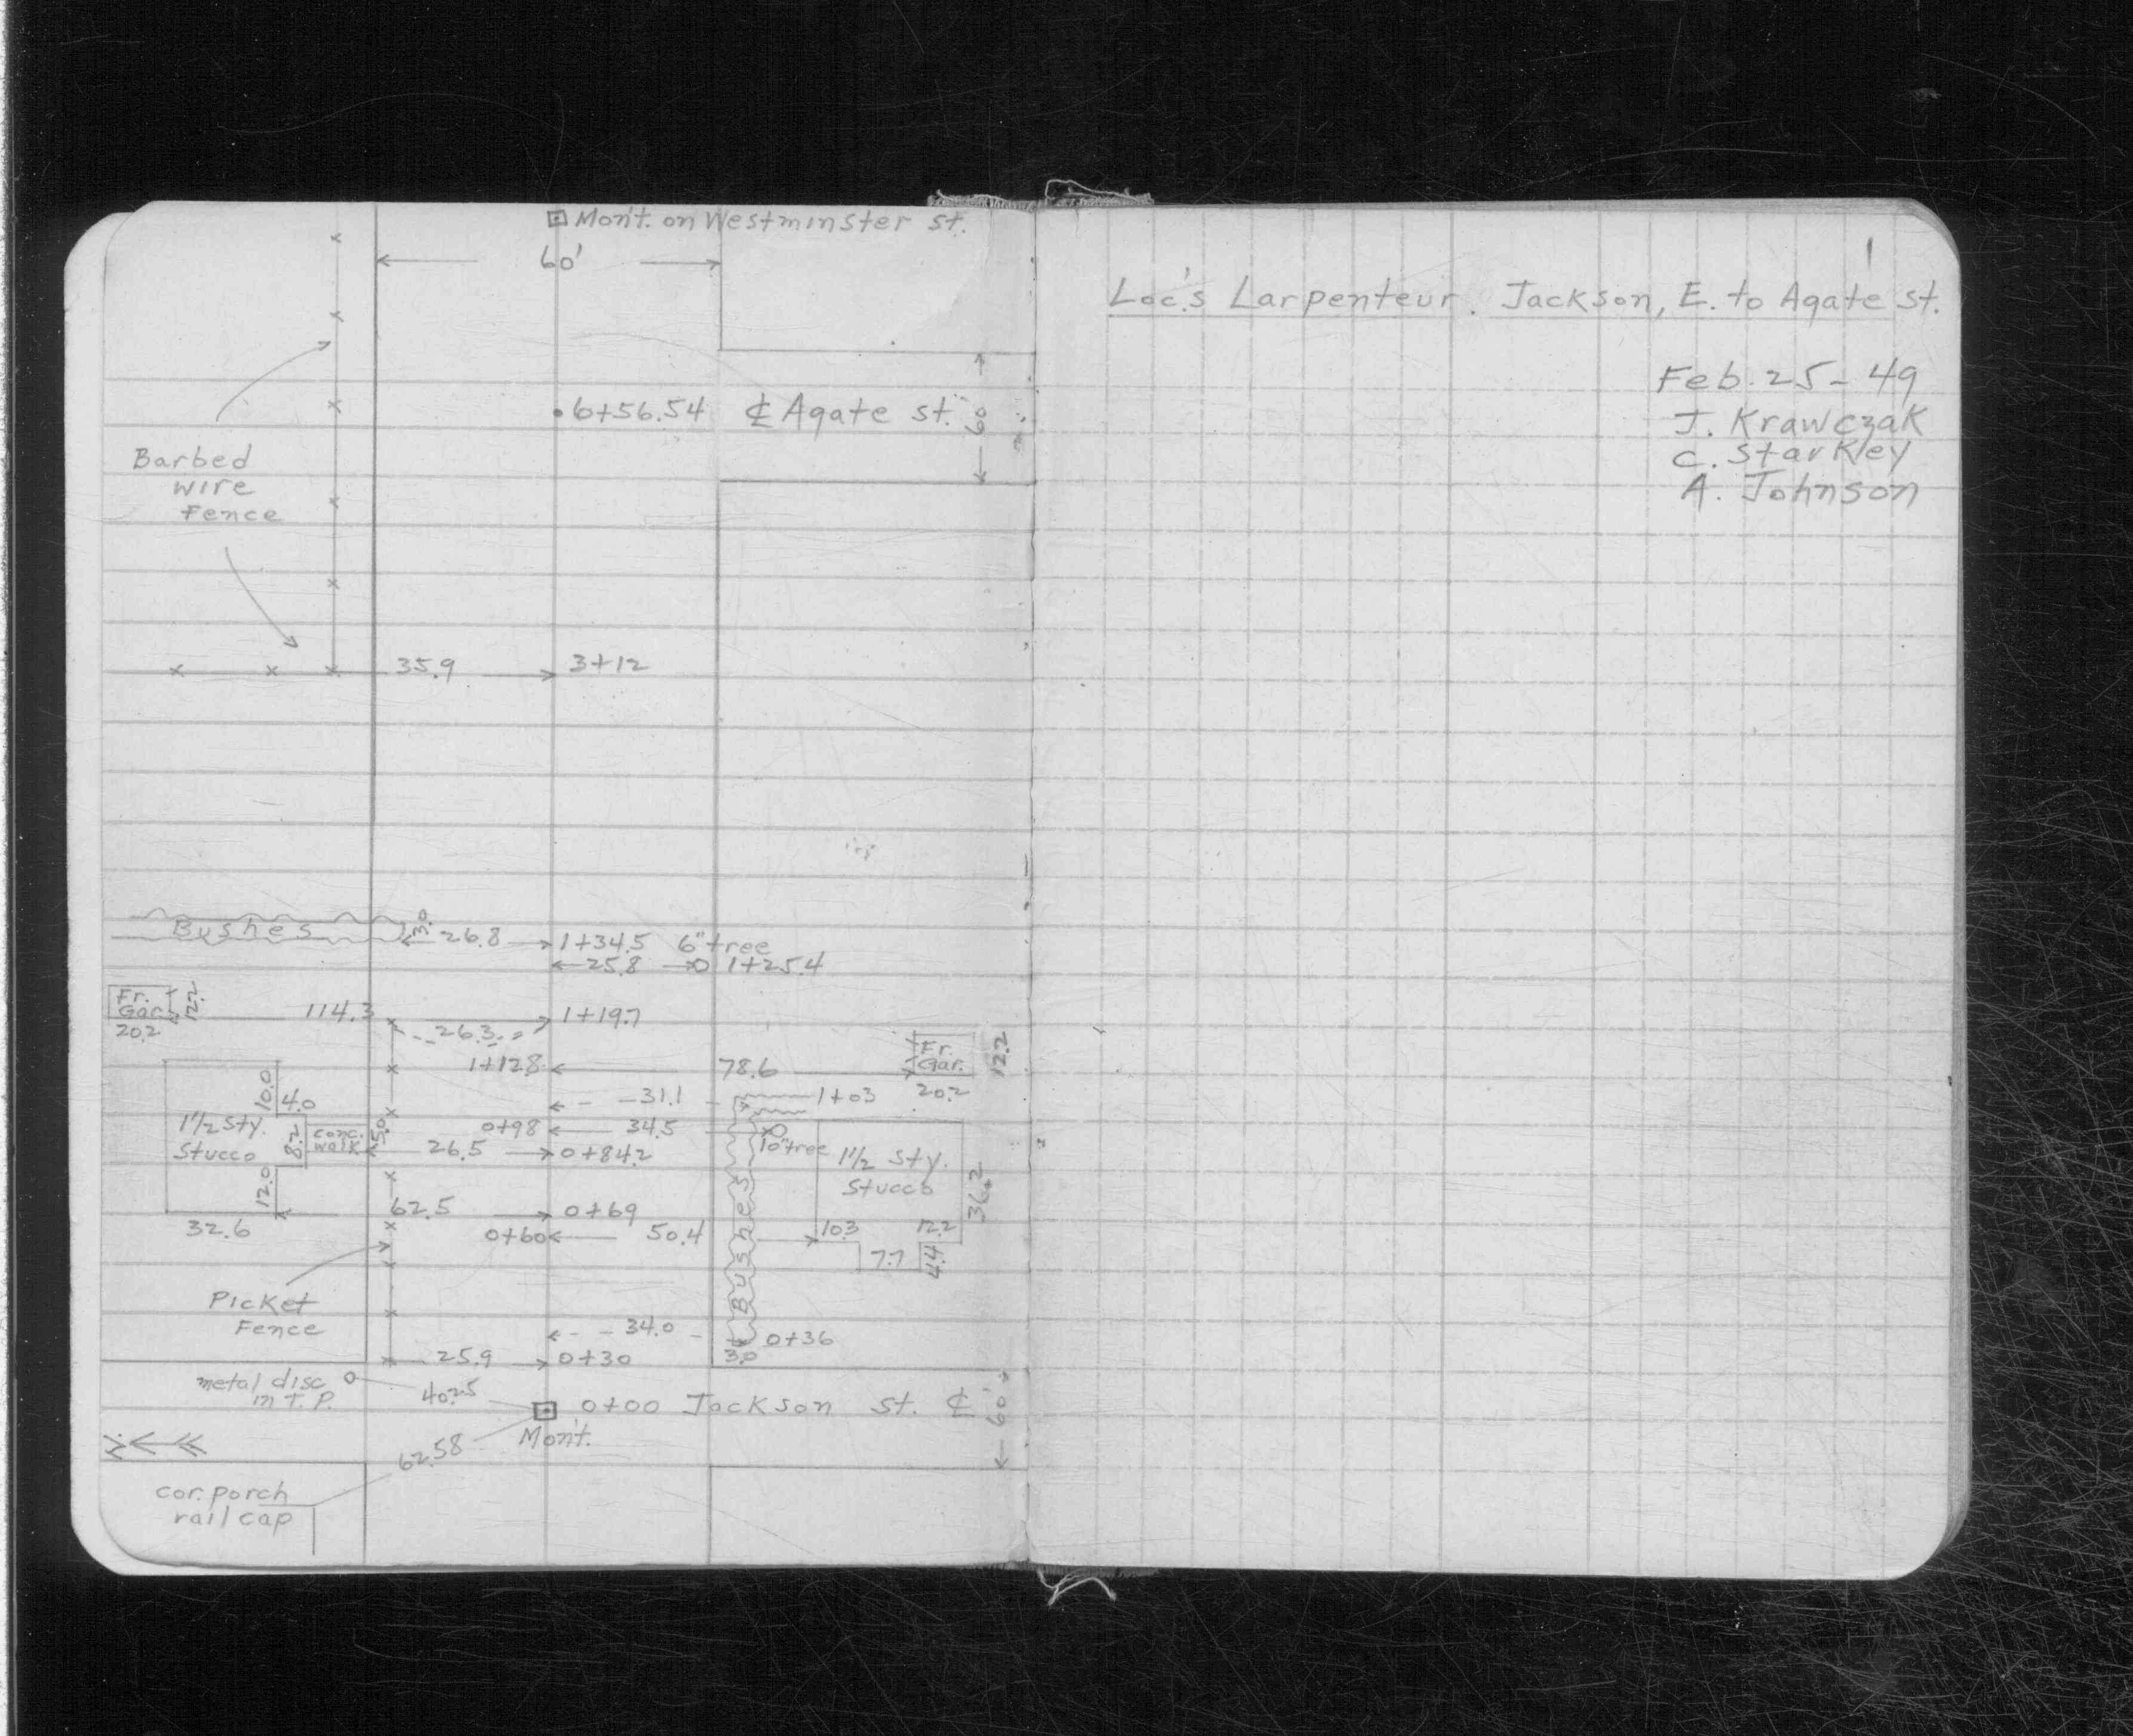 Mon't. on Westminster st.
60'
6+56.54 ℄ Agate st.
60
Barbed
wire
Fence
35.9 3+12
Bushes
3.0
26.8 1+34.5 6" tree
25.8 1+25.4
Fr.
Gar.
12.2
20.2
114.3 1+19.7
26.3
1+12.8 78.6
Fr.
Gar.
12.2
20.2
31.1 1+03
10.0
4.0
0+98 34.5
10" tree
1½ sty.
Stucco
8.2
conc.
walk
5.0
26.5 0+84.2
1½ sty.
Stucco
36.2
12.0
32.6
62.5 0+69
0+60 50.4
10.3 12.2
7.7 4.4
Bushes
Picket
Fence
34.0 0+36
3.0
25.9 0+30
metal disc
in T.P.
40.25
0+00 Jackson st. ℄
60'
Mon't.
N
62.58
cor. porch
rail cap
1
Loc's Larpenteur. Jackson, E. to Agate st.
Feb. 25-49
J. Krawczak
C. Starkley
A. Johnson